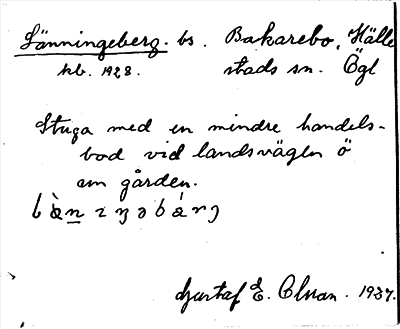 Länningeberg. bs. Bakarebo, Hälle
hb. 1928. stads sn. Ögl
Stuga med en mindre handels-
bod vid landsvägen ö
om gården.
Gustaf E. Olsson. 1937.